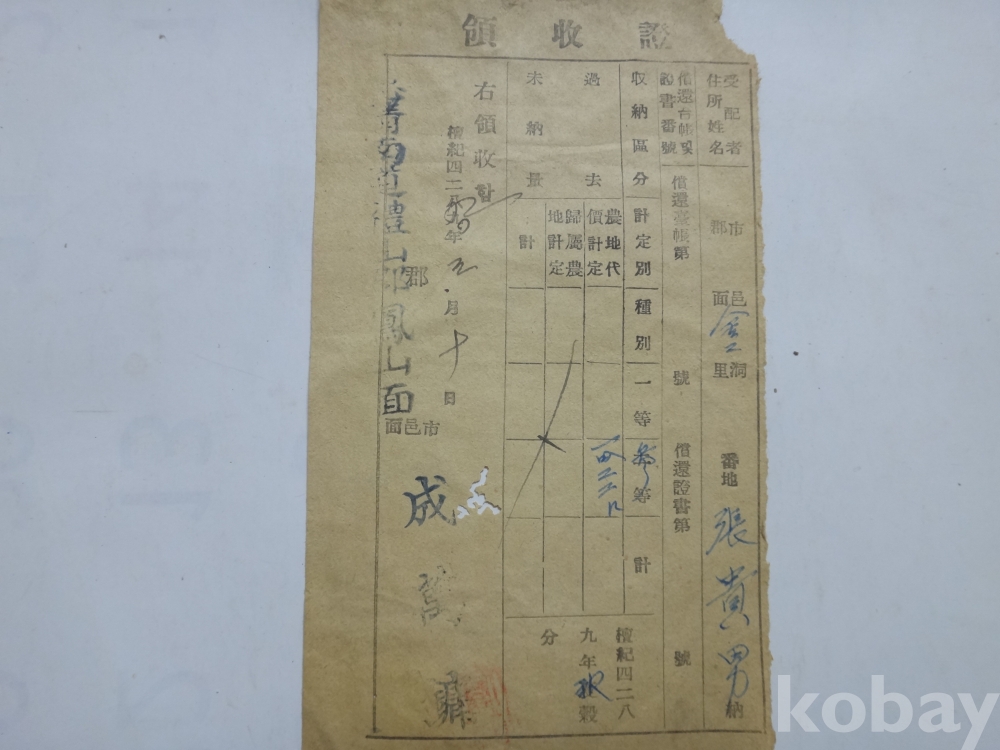 領收證
受配者
住所姓名
市
郡
邑
面
金
洞
里
番地
張貴男
納
償還台帳及
證書番號
償還臺帳第
號
償還證書第
號
收納區分
計定別
種別
一等
等
計
檀紀四二八
九年
穀
分
過去
未納量
農地代
價計定
歸屬農
地計定
計
右領收함
檀紀四二八九年五月十日
南道禮山郡鳳山面
郡
市邑面
成
kobay